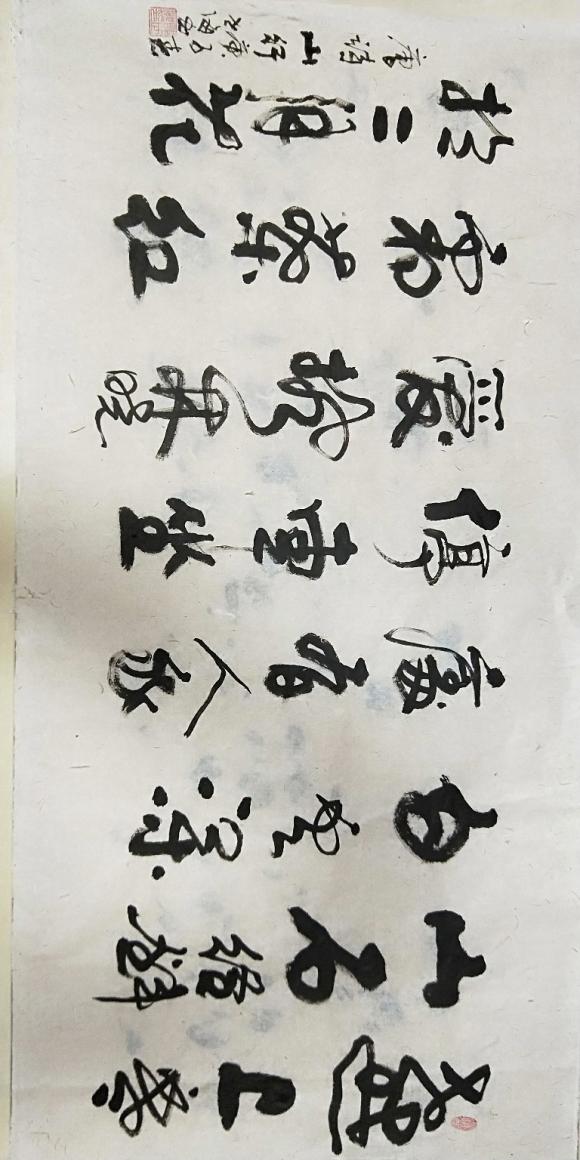 遠上寒
山石徑斜
白云深
處有人家
停車坐
愛楓林晚
霜葉紅
於二月花
唐詩山行庚子